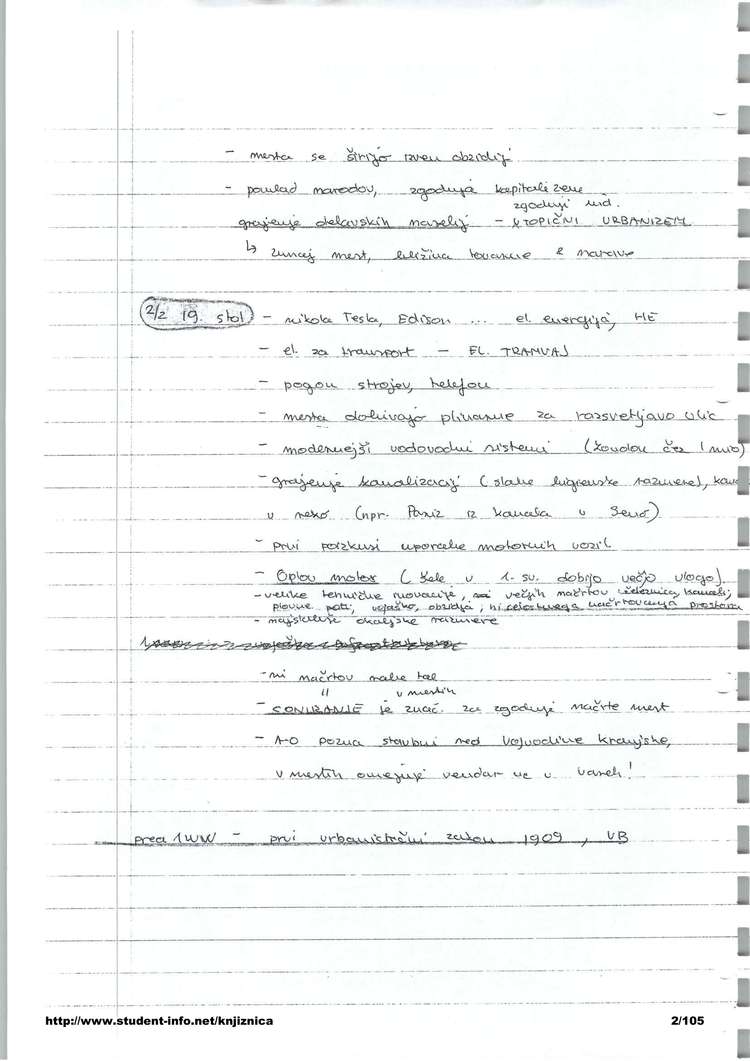 - mesta se širijo izven obzidij
- pomlad narodov, zgodnja kapitalizem
zgodnji ind.
grajenje delavskih naselij - UTOPIČNI URBANIZEM
↳ zunaj mest, bližina tovarne & narave
2/2 19. stol - nikola Tesla, Edison ... el. energija, HE
- el. za transport - EL. TRAMVAJ
- pogon strojev, telefon
- mesta dobivajo plinarne za razsvetljavo ulic
- modernejši vodovodni sistemi (London čez 1 mio)
- grajenje kanalizacij (slabe higienske razmere), kana
v reko (npr. Pariz iz kanala v Seno)
- prvi poizkusi uporabe motornih vozil
- Oplov motor (šele v 1. sv. dobijo večjo vlogo)
- velike tehnične inovacije, ni večjih načrtov (železnica, kanali,
plovne poti, vojaško, obzidja, ni celostnega načrtovanja prostora
- najslabše okoljske razmere
- ni načrtov rabe tal
" v mestih
- CONIRANJE je znač. za zgodnje načrte mest
- A-O pozna stavbni red Vojvodine kranjske,
v mestih omejuje vendar ne v vaseh!
pred 1WW - prvi urbanistični zakon 1909, VB
http://www.student-info.net/knjiznica
2/105